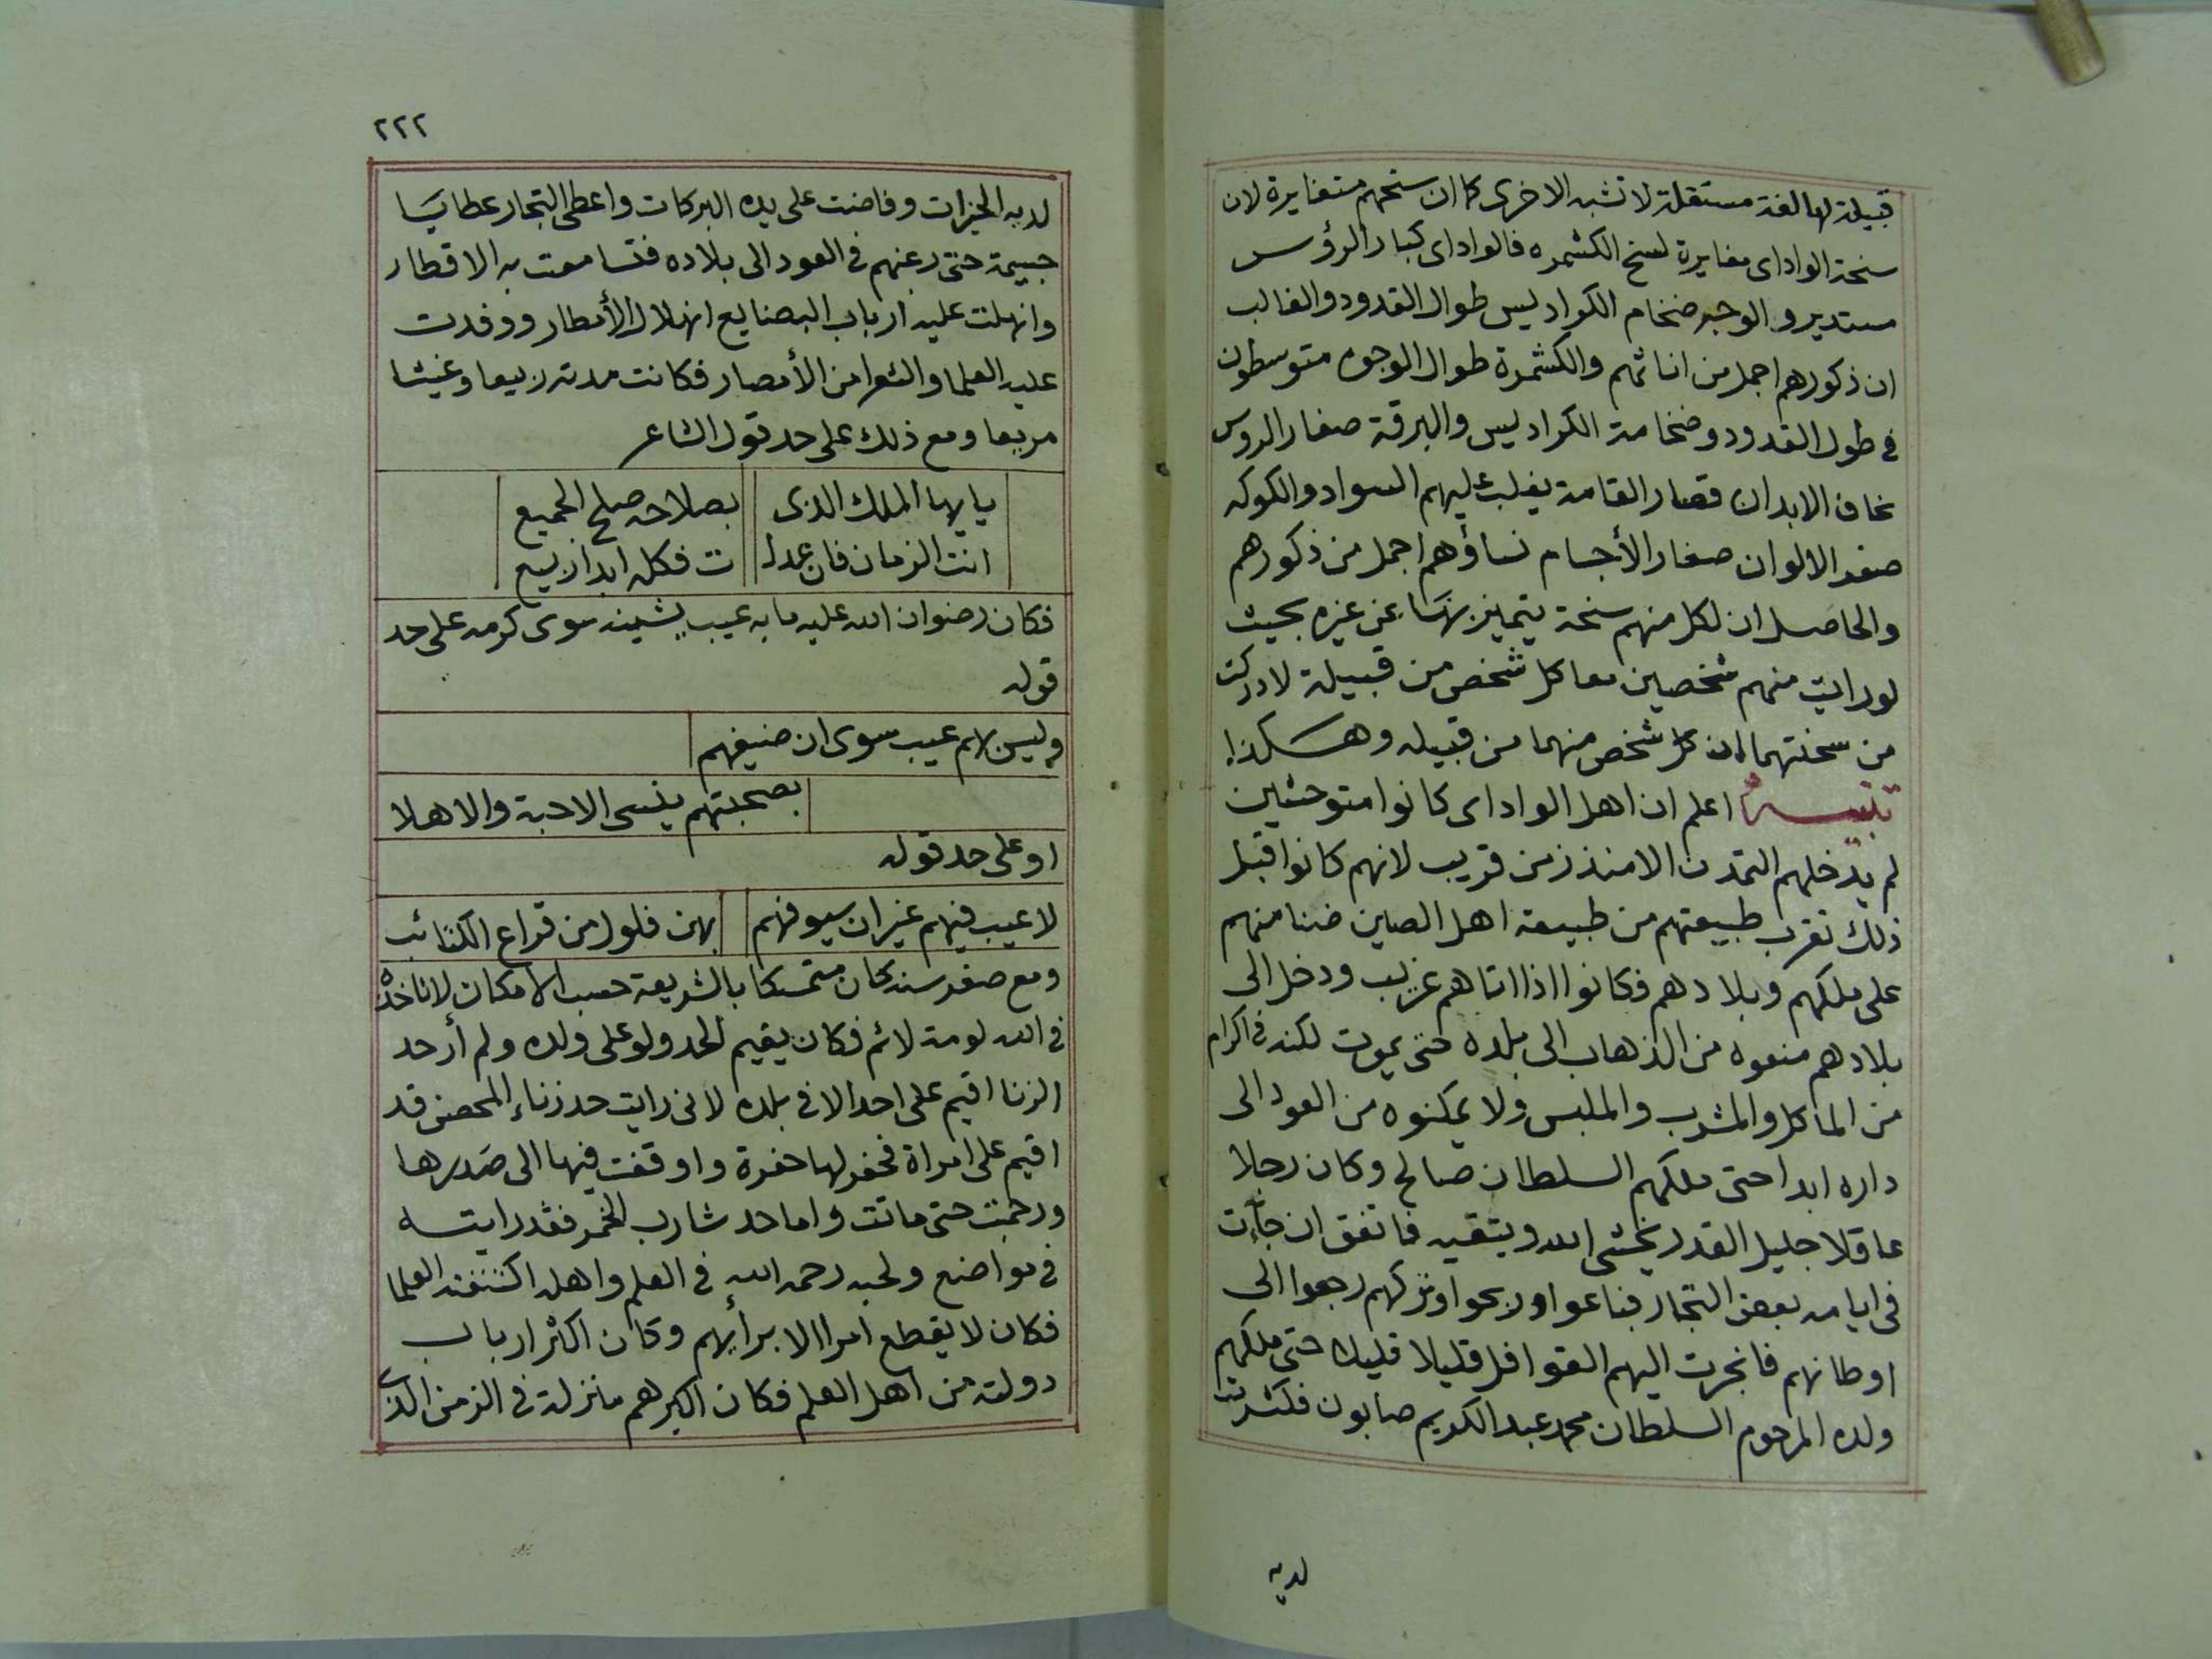 قبيلة لها لغة مستقلة لا تشبه الاخرى كما ان سنحهم متغايرة لان
سنحة الواداى مغايرة لسنح الكشمره فالواداى كبار الرؤس
مستديرو الوجه ضخام الكراديس طوال القدود والغالب
ان ذكورهم اجمل من اناثهم والكشمرة طوال الوجوه متوسطون
فى طول القدود وضخامة الكراديس والبرقة صغار الروس
نحاف الابدان قصار القامة يغلب عليهم السواد والكوكه
صفر الالوان صغار الأجسام نساؤهم اجمل من ذكورهم
والحاصل ان لكل منهم سنحة يتميز بها عن غيره بحيث
لو رايت منهم شخصين معا كل شخص من قبيلة لادركت
من سحنتهما ان كل شخص منهما من قبيله وهكذا
تنبيه اعلم ان اهل الواداى كانوا متوحشين
لم يدخلهم التمدن الا منذ زمن قريب لانهم كانوا قبل
ذلك تقرب طبيعتهم من طبيعة اهل الصين ضنا منهم
على ملكهم وبلادهم فكانوا اذا اتاهم غريب ودخل الى
بلادهم منعوه من الذهاب الى بلده حتى يموت لكنه فى اكرام
من الماكل والمشرب والملبس ولا يمكنوه من العود الى
داره ابدا حتى ملكهم السلطان صالح وكان رجلا
عاقلا جليل القدر يخشى الله ويتقيه فاتفق ان جاءت
فى ايامه بعض التجار فباعوا وربحوا وتركهم رجعوا الى
اوطانهم فانجرت اليهم القوافل قليلا قليلا حتى ملكهم
ولده المرحوم السلطان محمد عبد الكريم صابون فكثرت
لديه
٢٢٢
لديه الخيرات وفاضت على يده البركات واعطى التجار عطايا
جسيمة حتى رغبهم فى العود الى بلاده فتسامعت به الاقطار
وانهلت عليه ارباب البضايع انهلال الأمطار ووفدت
عليه العلما والشعرا من الأمصار فكانت مدته ربيعا وغيثا
مريعا ومع ذلك على حد قول الشاعر
يا ايها الملك الذى بصلاحه صلح الجميع
انت الزمان فان عدلـ ـت فكله ابدا ربيع
فكان رضوان الله عليه ما به عيب يشينه سوى كرمه على حد
قوله
وليس بهم عيب سوى ان ضيفهم
بصحبتهم ينسى الاحبة والاهلا
او على حد قوله
لا عيب فيهم غير ان سيوفهم بهن فلول من قراع الكتائب
ومع صغر سنه كان متمسكا بالشريعة حسب الامكان لا تاخذه
فى الله لومة لائم فكان يقيم الحد ولو على ولده ولم أر حد
الزنا اقيم على احد الا فى بلده لانى رايت حد زناء المحصن قد
اقيم على امراة فحفر لها حفرة واوقفت فيها الى صدرها
ورجمت حتى ماتت واما حد شارب الخمر فقد رايته
فى مواضع ولحبه رحمه الله فى العلم واهله اكتنفته العلما
فكان لا يقطع امرا الا برأيهم وكان اكثر ارباب
دولته من اهل العلم فكان اكبرهم منزلة فى الزمن الذى